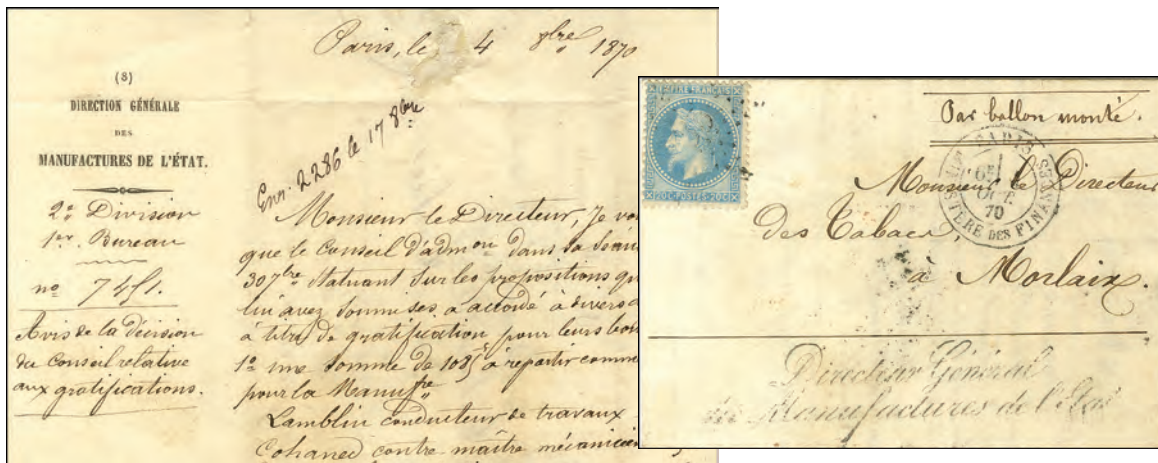 Paris, le 4 8bre 1870
(8)
DIRECTION GÉNÉRALE
DES
MANUFACTURES DE L'ÉTAT.
2e Division
1er Bureau
no 7451.
Avis de la décision
du Conseil relative
aux gratifications.
Enr. 2286 le 17 8bre
Monsieur le Directeur, Je
que le Conseil d'admon dans sa
30 7bre statuant sur les propositions
lui avez soumises a accordé à divers
à titre de gratification pour leurs
1o une somme de 1085 à répartir comme
pour la Manufre
Lamblin conducteur de travaux
Cohaned contre maître mécanicien
EMPIRE FRANÇAIS
20C POSTES 20C
Par ballon monté.
PARIS
6E
OCT.
70
MINISTÈRE DES FINANCES
Monsieur le Directeur
des Tabacs,
à Morlaix.
Directeur Général
des Manufactures de l'Etat